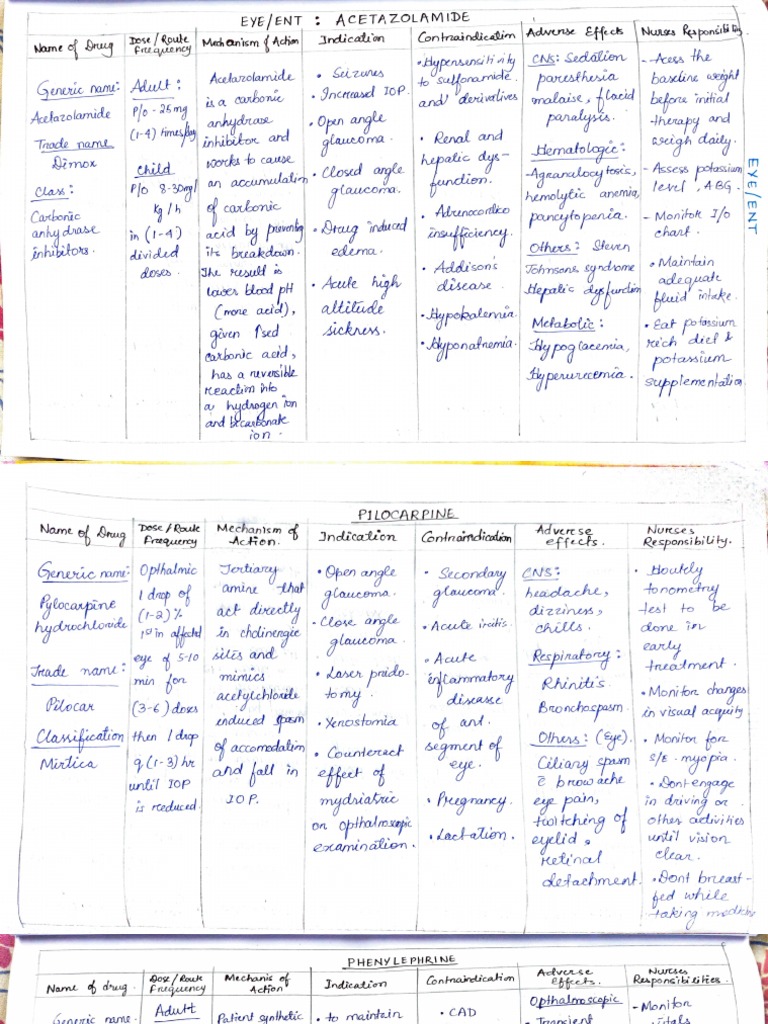 EYE/ENT : ACETAZOLAMIDE
Name of Drug
Dose/Route
Frequency
Mechanism of Action
Indication
Contraindication
Adverse Effects
Nurses Responsibility
Generic name:
Acetazolamide
Trade name
Dimox
Class:
Carbonic
anhydrase
inhibitors.
Adult:
P/O - 25mg
(1-4) times/day
Child
P/O 8-30mg/
kg/h
in (1-4)
divided
doses.
Acetazolamide
is a carbonic
anhydrase
inhibitor and
works to cause
an accumulation
of carbonic
acid by preventing
its breakdown.
The result is
lower blood pH
(more acid),
given ↑sed
carbonic acid,
has a reversible
reaction into
a hydrogen ion
and bicarbonate
ion.
• Seizures
• Increased IOP.
• Open angle
glaucoma.
• Closed angle
glaucoma.
• Drug induced
edema.
• Acute high
altitude
sickness.
• Hypersensitivity
to sulfonamide
and derivatives
• Renal and
hepatic dys-
function.
• Adrenocortico
insufficiency.
• Addison's
disease.
• Hypokalemia
• Hyponatremia.
CNS: Sedation
paresthesia
malaise, flacid
paralysis.
Hematologic:
Agranulocytosis,
hemolytic anemia,
pancytopenia.
Others: Steven
Johnsons syndrome
Hepatic dysfunction
Metabolic:
Hypoglacemia,
Hyperuricemia.
- Acess the
baseline weight
before initial
therapy and
weigh daily.
- Assess potassium
level, ABG.
- Monitor I/O
chart.
• Maintain
adequate
fluid intake.
• Eat potassium
rich diet &
potassium
supplementation
EYE/ENT
PILOCARPINE
Name of Drug
Dose/Route
Frequency
Mechanism of
Action.
Indication
Contraindication
Adverse
effects.
Nurses
Responsibility.
Generic name:
Pylocarpine
hydrochloride
Trade name:
Pilocar
Classification
Mirtica
Opthalmic
1 drop of
(1-2)%
1st in affected
eye of 5-10
min for
(3-6) doses
then 1 drop
q (1-3) hr
until IOP
is reduced.
Tertiary
amine that
act directly
in cholinergic
sites and
mimics
acetylchloride
induced spasm
of accomodation
and fall in
IOP.
• Open angle
glaucoma.
• Close angle
glaucoma.
• Laser prido-
tomy.
• Xenostomia
• Counteract
effect of
mydriatric
on opthalroscopic
examination.
• Secondary
glaucoma.
• Acute iritis.
• Acute
inflammatory
disease
of ant.
segment of
eye.
• Pregnancy.
• Lactation.
CNS:
headache,
dizziness,
chills.
Respiratory:
Rhinitis
Bronchospasm.
Others: (Eye).
Ciliary spasm
c̄ browache
eye pain,
twitching of
eyelid.
retinal
detachment.
• Hourly
tonometry
test to be
done in
early
treatment.
• Monitor changes
in visual acquity
• Monitor for
S/E - myopia.
• Dont engage
in driving or
other activities
until vision
clear.
• Dont breast-
fed while
taking medicin
PHENYLEPHRINE
Name of drug.
Dose/Route
Frequency
Mechanis of
Action
Indication
Contraindication
Adverse
Effects.
Nurses
Responsibilities.
Generic name.
Adult
Patient synthetic
• to maintain
• CAD
Opthalroscopic
- Transient
- Monitor
vitals